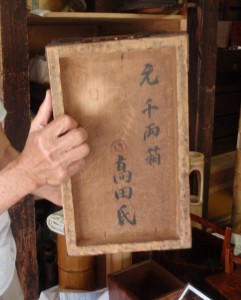 元 千両箱
高田氏